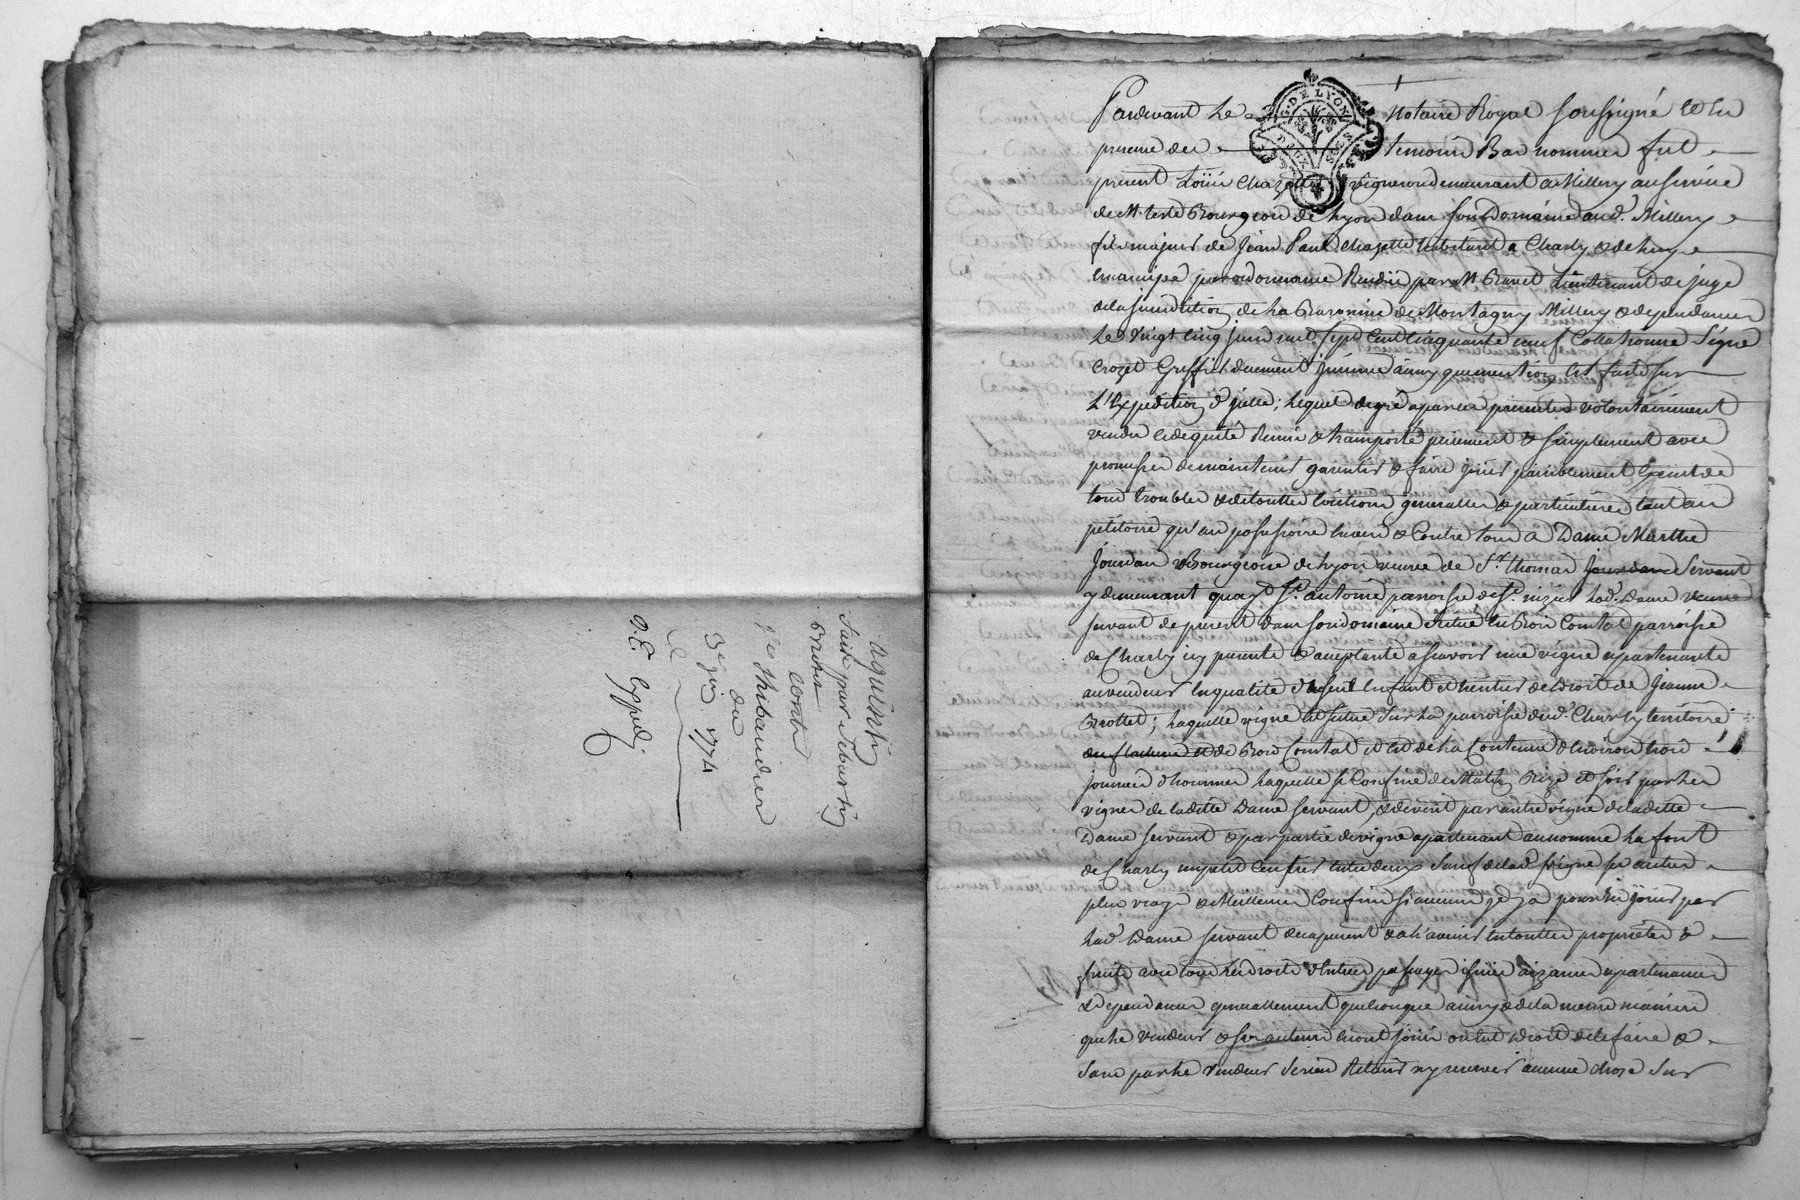 acquisit
faite par Sebastien
Brottet
contre
Thibaudier
du
3e juin 1774
2e Exped.
G. DE LYON
DEUX SOLS
Pardevant Le Notaire Royal soussigné et en
presence des temoins Bas nommes fut
present Loüis Chazette vigneron demeurant a Millery au service
de Mr teste Bourgeois de Lyon dans son Domaine aud. Millery
fils majeur de Jean Paul chazette habitant a Charly & de luy
emancipé par ordonnance Rendüe par Mr Bravet Lieutenant de juge
de la jurisdiction de La Baronnie de Montagny Millery & dependances
Le vingt cinq juin mil sept Cent cinquante neuf Collationné Signé
Crozet Greffier duement jnsinué ainsy que mention est faite sur
L'Expedition d'jcelle; Lequel de gré a par ces presentes volontairement
vendu cedé quitté Remis & transporté purement & simplement avec
promesse de maintenir garentir & faire joüir paisiblement Exempt de
tous troubles & de touttes Evictions generalles & particulieres tant au
petitoire qu'au possessoire Envers & Contre tous a Dame Marthe
Jourdan Bourgeoise de Lyon veuve de Sr. thomas Servant
y demeurant quay St. antoine parroisse de St. nizier Lad. Dame veuve
servant de present dans son domaine situé En Bois Comtal parroisse
de Charly icy presente & acceptante a scavoir une vigne apartenante
au vendeur En qualité d'seul Enfant et heritier de droit de Jeanne
Brottet; Laquelle vigne est située sur La parroisse dud. Charly territoire
de Bois Comtal et est de La Contenue d'Environ trois
journées d'hommes Laquelle se Confine de Matin Bize et soir par Les
vignes de Laditte Dame servant, & de vent par autre vigne de laditte
Dame servant & par partie de vigne apartenant au nommé La font
de Charly un petit sentier Entre deux Sauf de lad. vigne ses autres
plus vrays & Meilleurs Confins si aucuns jl y a pour En joüir par
Lad. Dame servant des a present & a L'avenir En toutte proprieté &
fruits avec tous Les droits d'Entrée passages issües aizances apartenances
& dependances generallement quelconque ainsy & de la meme maniere
que Le vendeur & ses auteurs En ont joüi ou Eut droit de le faire &
Sans par Le vendeur se rien Retenir ny reserver aucune chose Sur